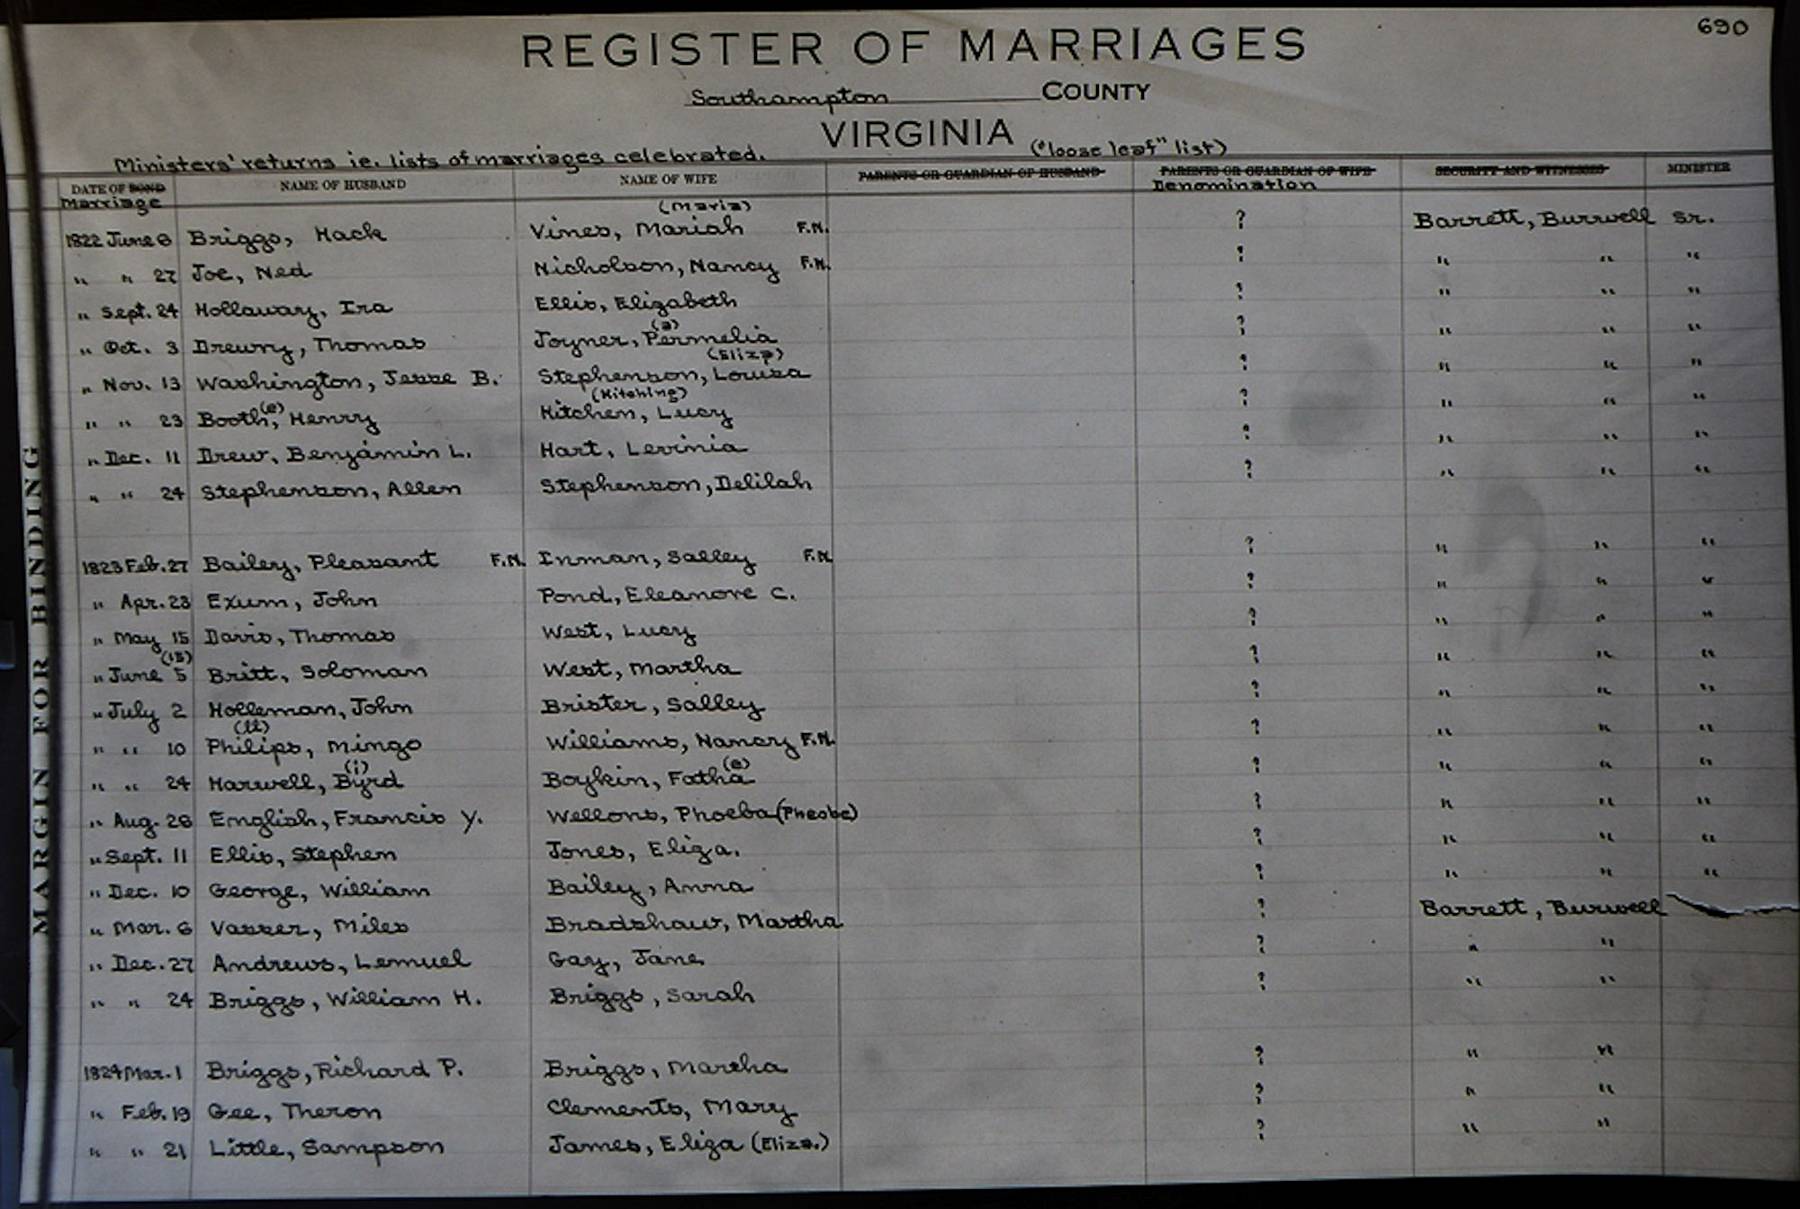 690
REGISTER OF MARRIAGES
Southampton COUNTY
VIRGINIA ("loose leaf" list)
Ministers' returns ie. lists of marriages celebrated.
DATE OF BOND NAME OF HUSBAND NAME OF WIFE PARENTS OR GUARDIAN OF HUSBAND PARENTS OR GUARDIAN OF WIFE SECURITY AND WITNESSES MINISTER
Marriage Denomination
(Maria)
1822 June 6 Briggs, Hack Vines, Mariah F.N. ? Barrett, Burwell Sr.
" " 27 Joe, Ned Nicholson, Nancy F.N. ? " " "
" Sept. 24 Hollaway, Ira Ellis, Elizabeth ? " " "
(a)
" Oct. 3 Drewry, Thomas Joyner, Permelia ? " " "
(Eliza)
" Nov. 13 Washington, Jesse B. Stephenson, Louisa ? " " "
(e) (Kitching)
" " 23 Booth, Henry Kitchen, Lucy ? " " "
" Dec. 11 Drew, Benjamin L. Hart, Levinia ? " " "
" " 24 Stephenson, Allen Stephenson, Delilah ? " " "
1823 Feb. 27 Bailey, Pleasant F.N. Inman, Salley F.N. ? " " "
" Apr. 23 Exum, John Pond, Eleanore C. ? " " "
" May 15 Davis, Thomas West, Lucy ? " " "
(15)
" June 5 Britt, Soloman West, Martha ? " " "
" July 2 Holleman, John Brister, Salley ? " " "
(ll)
" " 10 Philips, Mingo Williams, Nancy F.N. ? " " "
(i) (e)
" " 24 Harwell, Byrd Boykin, Fatha ? " " "
" Aug. 28 English, Francis Y. Wellons, Phoeba (Pheobe) ? " " "
" Sept. 11 Ellis, Stephen Jones, Eliza. ? " " "
" Dec. 10 George, William Bailey, Anna ? " " "
" Mar. 6 Vasser, Miles Bradshaw, Martha ? Barrett, Burwell
" Dec. 27 Andrews, Lemuel Gay, Jane ? " "
" " 24 Briggs, William H. Briggs, Sarah ? " "
1824 Mar. 1 Briggs, Richard P. Briggs, Martha ? " "
" Feb. 19 Gee, Theron Clements, Mary ? " "
" " 21 Little, Sampson James, Eliza (Eliza.) ? " "
MARGIN FOR BINDING